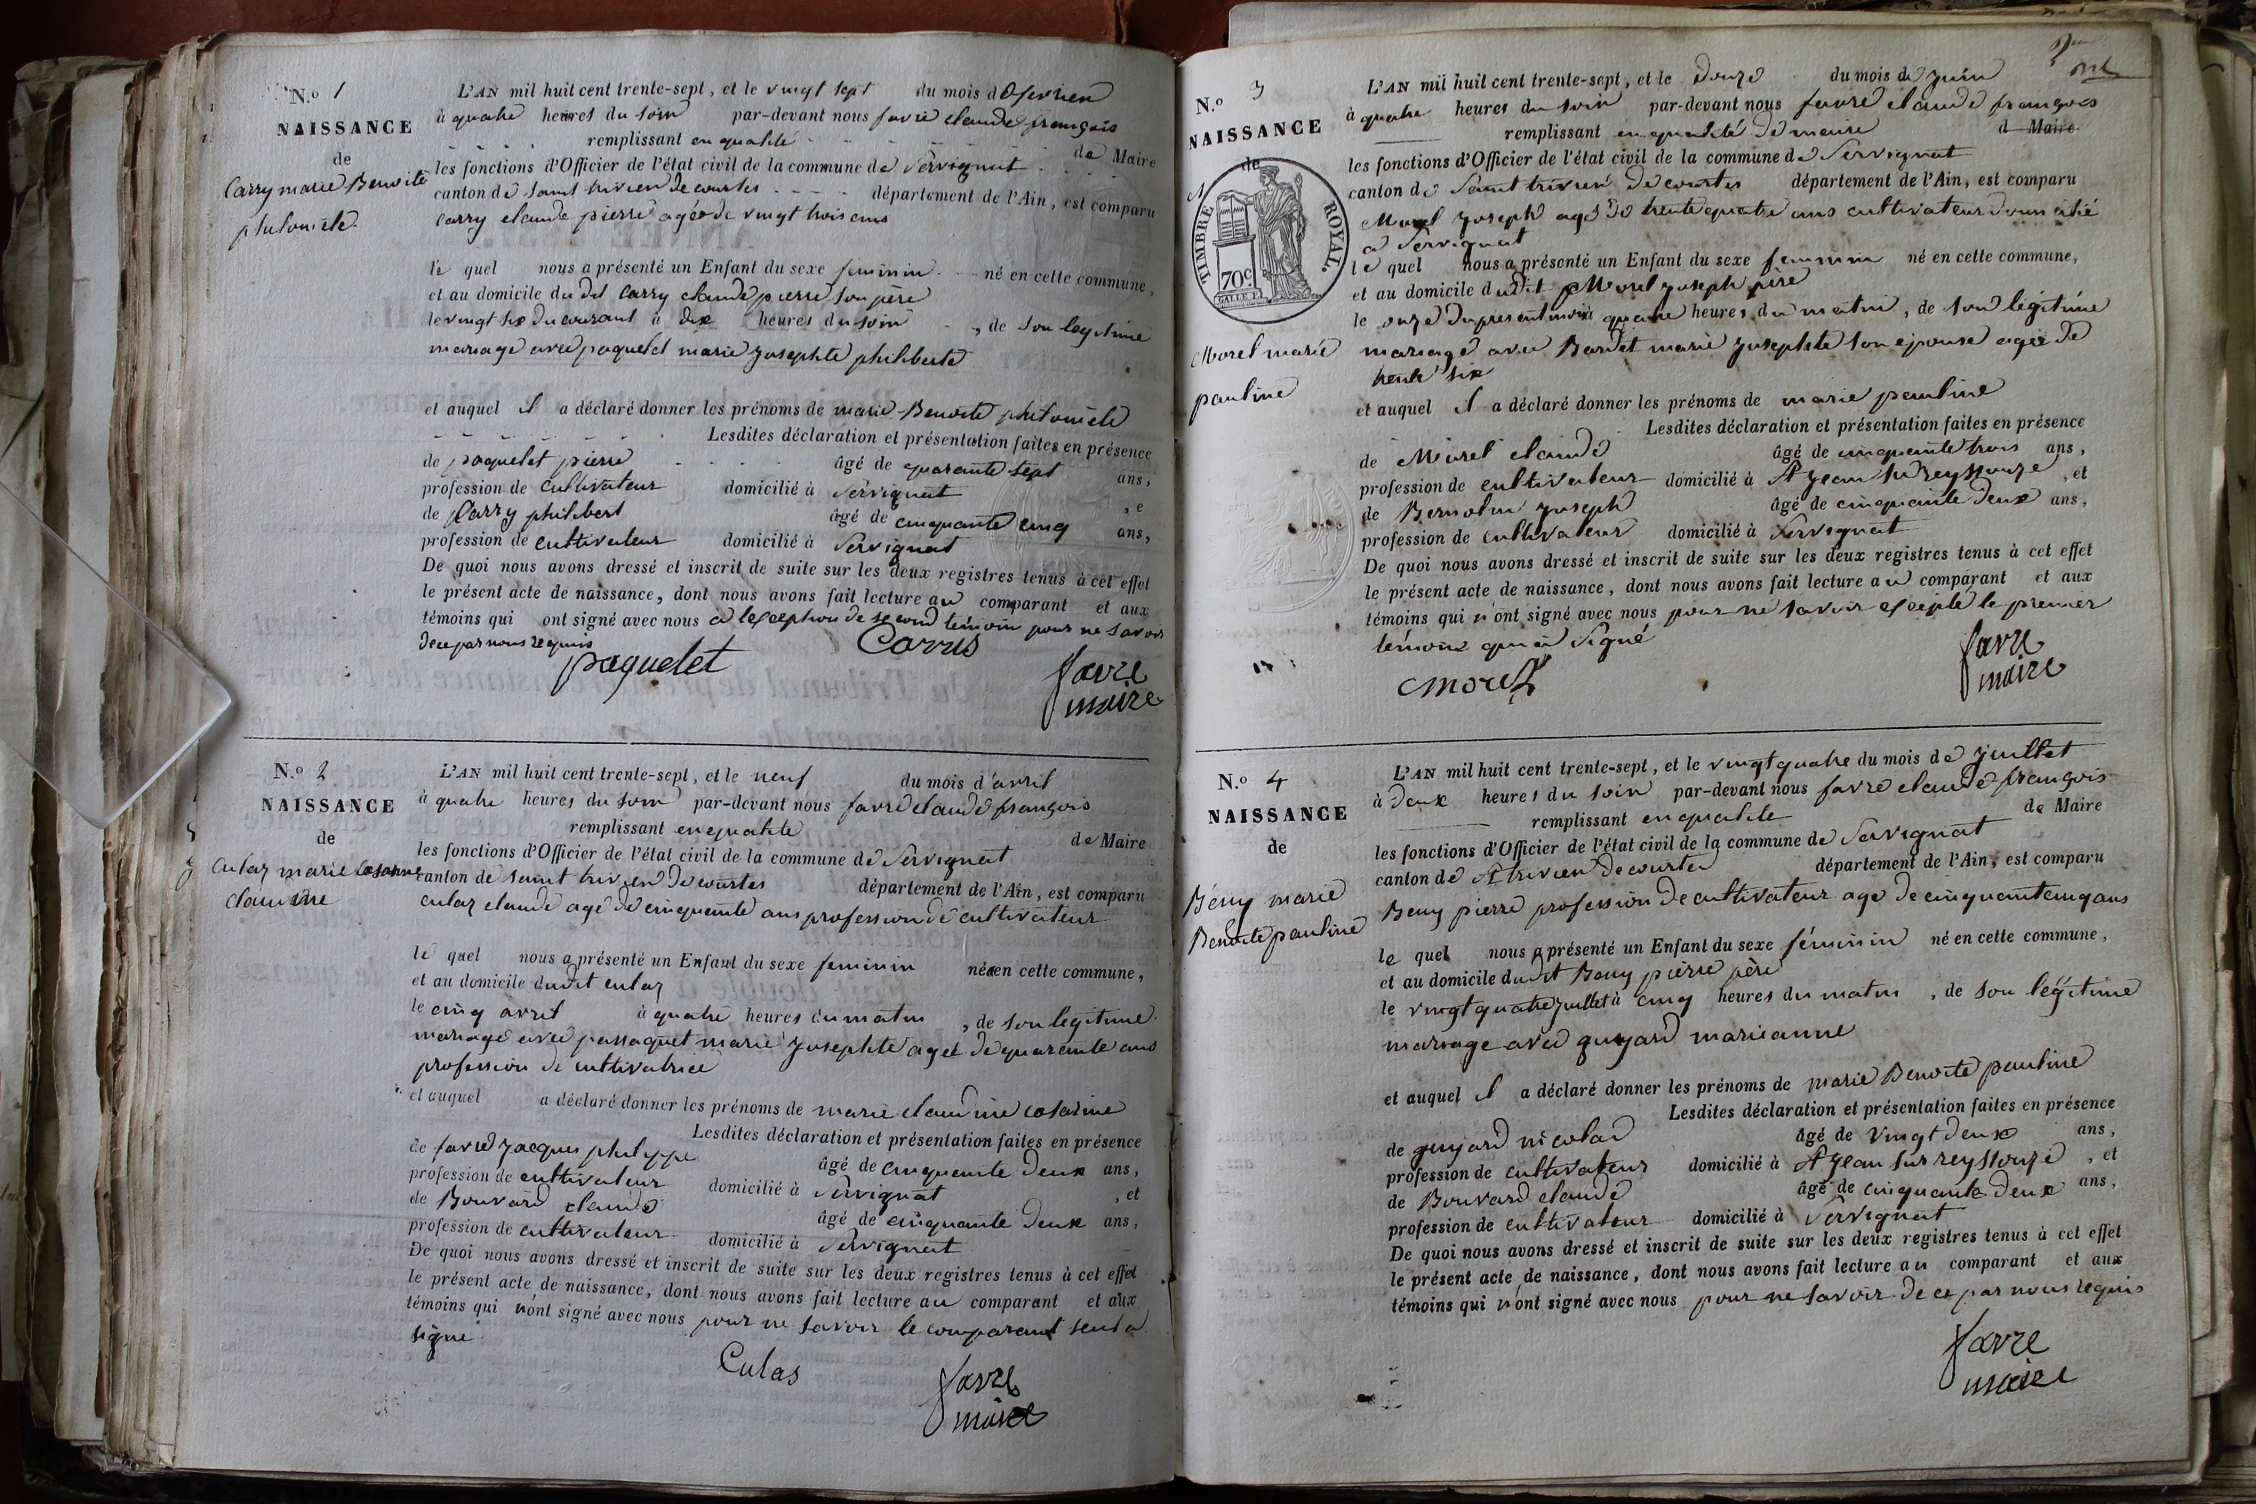 N.o 1
NAISSANCE
de
Carry marie Benoite
philomele
L'AN mil huit cent trente-sept, et le vingt sept du mois de fevrier
à quatre heures du soir par-devant nous favre claude françois
remplissant en qualité de Maire
les fonctions d'Officier de l'état civil de la commune de Servignat
canton de saint trivier de courtes département de l'Ain, est comparu
Carry claude pierre agée de vingt trois ans
le quel nous a présenté un Enfant du sexe feminin né en cette commune,
et au domicile du dit Carry claude pierre son père
le vingt six du courant à dix heures du soir, de son legitime
mariage avec paquelet marie josephte philiberte
et auquel il a déclaré donner les prénoms de marie Benoite philomele
Lesdites déclaration et présentation faites en présence
de paquelet pierre âgé de quarante sept ans,
profession de cultivateur domicilié à Servignat, e
de Carry philibert âgé de cinquante cinq ans,
profession de cultivateur domicilié à Servignat
De quoi nous avons dressé et inscrit de suite sur les deux registres tenus à cet effet
le présent acte de naissance, dont nous avons fait lecture au comparant et aux
témoins qui ont signé avec nous à lexception de second témoin pour ne savoir
de ce par nous requis
paquelet favre
maire
N.o 2
NAISSANCE
de
Culaz marie
claudine
L'AN mil huit cent trente-sept, et le neuf du mois d'avril
à quatre heures du soir par-devant nous favre claude françois
remplissant en qualité de Maire
les fonctions d'Officier de l'état civil de la commune de Servignat
canton de saint trivier de courtes département de l'Ain, est comparu
culaz claude agé de cinquante ans profession de cultivateur
le quel nous a présenté un Enfant du sexe feminin née en cette commune,
et au domicile dudit culaz
le cinq avril à quatre heures du matin, de son legitime
mariage avec passaquet marie josephte agée de quarante ans
profession de cultivatrice
et auquel a déclaré donner les prénoms de marie claudine
Lesdites déclaration et présentation faites en présence
de favre jacques philippe âgé de cinquante deux ans,
profession de cultivateur domicilié à Servignat, et
de Bouvard claude âgé de cinquante deux ans,
profession de cultivateur domicilié à Servignat
De quoi nous avons dressé et inscrit de suite sur les deux registres tenus à cet effet
le présent acte de naissance, dont nous avons fait lecture au comparant et aux
témoins qui n'ont signé avec nous pour ne savoir le comparant seul a
signé
Culas favre
maire
N.o 3
NAISSANCE
de
TIMBRE ROYAL.
70c.
Morel marie
pauline
L'AN mil huit cent trente-sept, et le douze du mois de juin
à quatre heures du soir par-devant nous favre claude françois
remplissant en qualité de maire d Maire
les fonctions d'Officier de l'état civil de la commune de Servignat
canton de Saint trivier de courtes département de l'Ain, est comparu
Morel joseph agé de trente quatre ans cultivateur domicilié
a Servignat
le quel nous a présenté un Enfant du sexe feminin né en cette commune,
et au domicile dudit Morel joseph père
le onze du present mois à quatre heures du matin, de son légitime
mariage avec Bardet marie josephte son epouse agée de
trente six
et auquel il a déclaré donner les prénoms de marie pauline
Lesdites déclaration et présentation faites en présence
de Morel claude âgé de cinquante trois ans,
profession de cultivateur domicilié à St jean sur reyssouze, et
de Bernolin joseph âgé de cinquante deux ans,
profession de cultivateur domicilié à Servignat
De quoi nous avons dressé et inscrit de suite sur les deux registres tenus à cet effet
le présent acte de naissance, dont nous avons fait lecture au comparant et aux
témoins qui n'ont signé avec nous pour ne savoir excepté le premier
témoin qui a signé
Morel favre
maire
N.o 4
NAISSANCE
de
Bény marie
Benoite pauline
L'AN mil huit cent trente-sept, et le vingt quatre du mois de juillet
à deux heures du soir par-devant nous favre claude françois
remplissant en qualité de Maire
les fonctions d'Officier de l'état civil de la commune de Servignat
canton de St trivier de courtes département de l'Ain, est comparu
Beny pierre profession de cultivateur age de cinquante cinq ans
le quel nous a présenté un Enfant du sexe féminin né en cette commune,
et au domicile dudit Beny pierre père
le vingt quatre juillet à cinq heures du matin, de son légitime
mariage avec guyard marie anne
et auquel il a déclaré donner les prénoms de marie Benoite pauline
Lesdites déclaration et présentation faites en présence
de guyard nicolas âgé de vingt deux ans,
profession de cultivateur domicilié à St jean sur reyssouze, et
de Bouvard claude âgé de cinquante deux ans,
profession de cultivateur domicilié à Servignat
De quoi nous avons dressé et inscrit de suite sur les deux registres tenus à cet effet
le présent acte de naissance, dont nous avons fait lecture au comparant et aux
témoins qui n'ont signé avec nous pour ne savoir de ce par nous requis
favre
maire